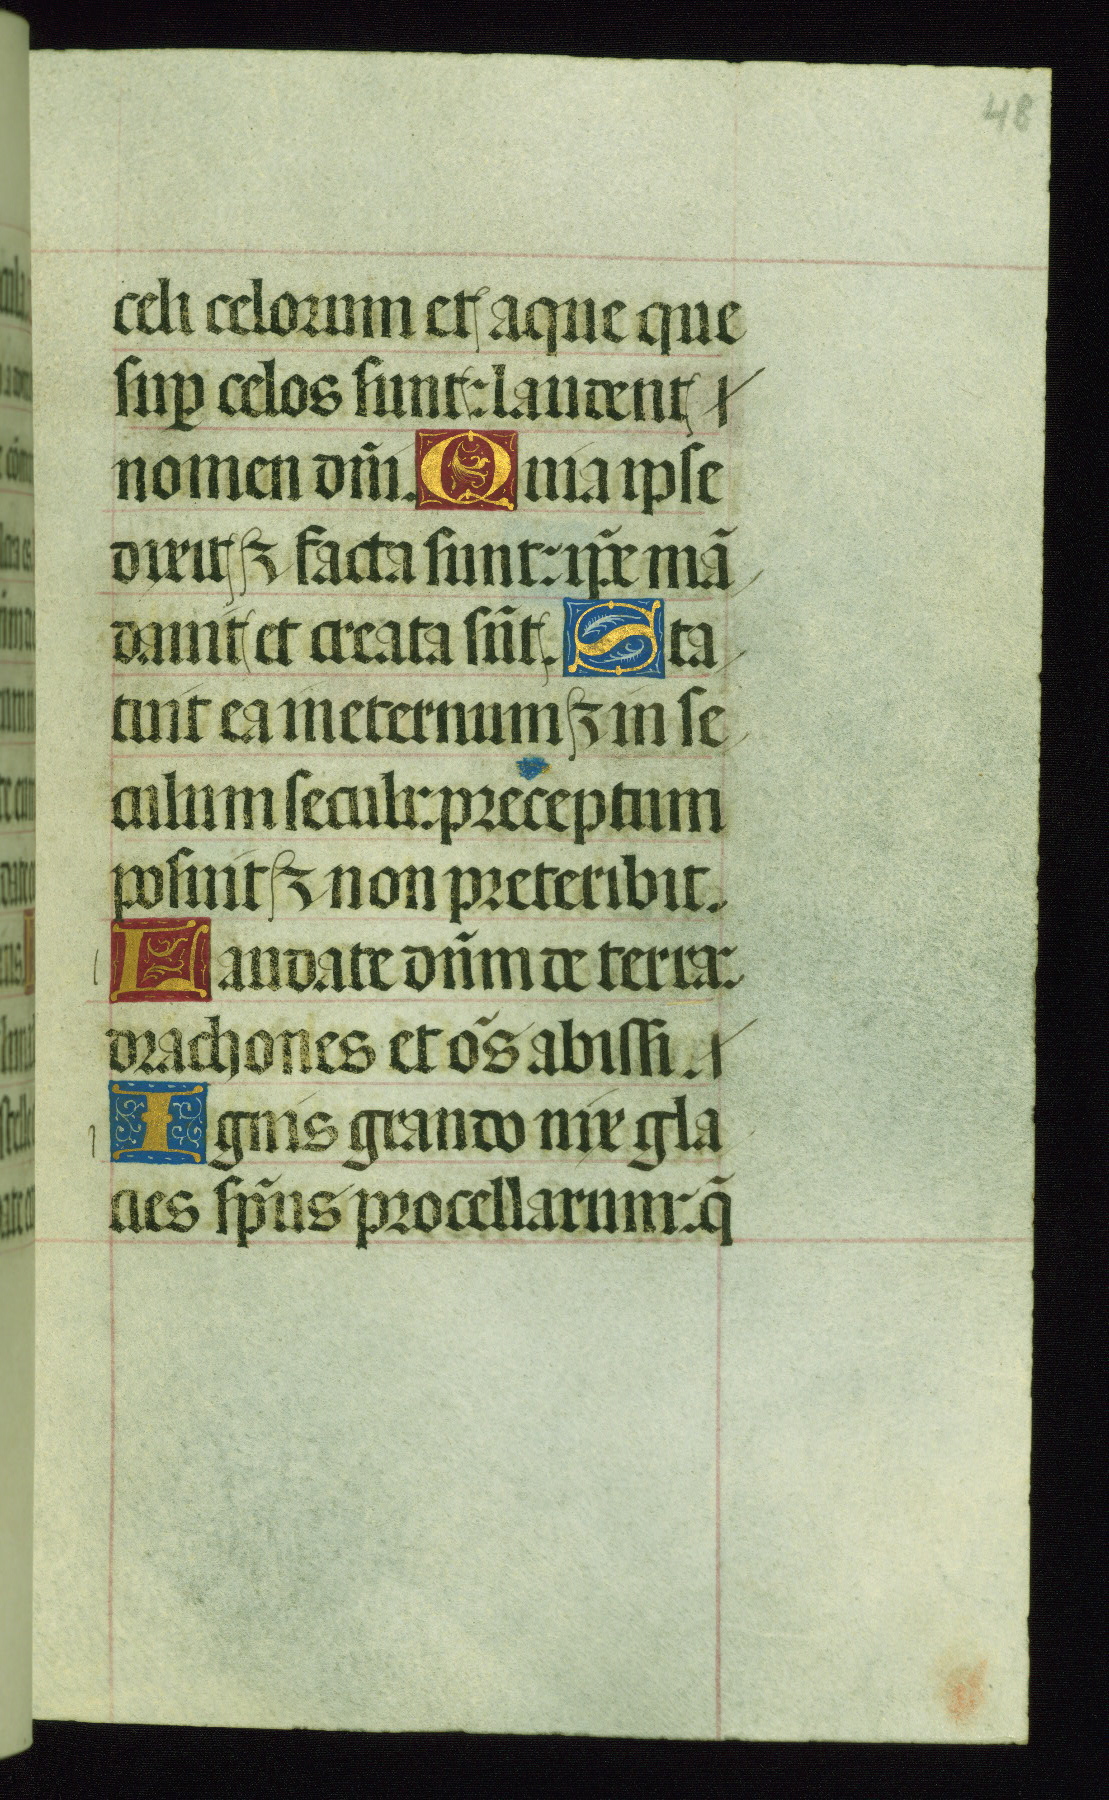 48
celi celorum et aque que
sup celos sunt: laudent
nomen dñi. Quia ipse
dixit ⁊ facta sunt: ip̃e mã
dauit et creata sũt. Sta
tuit ea in eternum ⁊ in se
culum seculi: preceptum
posuit ⁊ non preteribit.
Laudate dñm de terra:
drachones et õs abissi.
Ignis grando nix gla
cies sp̃us procellarum: q̃